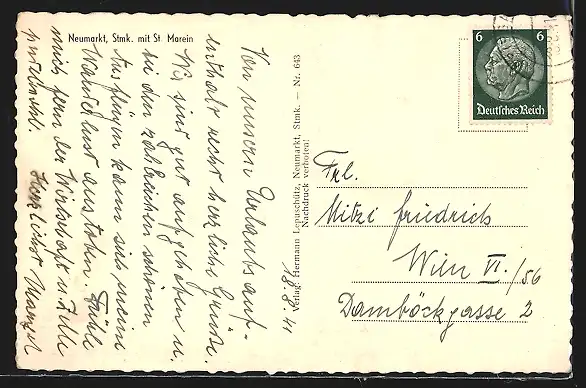 Neumarkt, Stmk. mit St. Marein
Von unserem Urlaubsauf-
enthalt recht herzliche Grüße.
Wir sind gut aufgehoben u.
bei den zahlreichen schönen
Ausflügen kann sich meine
Wanderlust austoben. Fühle
mich fern der Wirtschaft u.
pudelwohl.
Herzlichst
18.8.41
Verlag: Hermann Lepuschütz, Neumarkt, Stmk. — Nr. 643
Nachdruck verboten!
6 6
Deutsches Reich
Frl.
Mitzi Friedrich
Wien VI./56
Damböckgasse 2